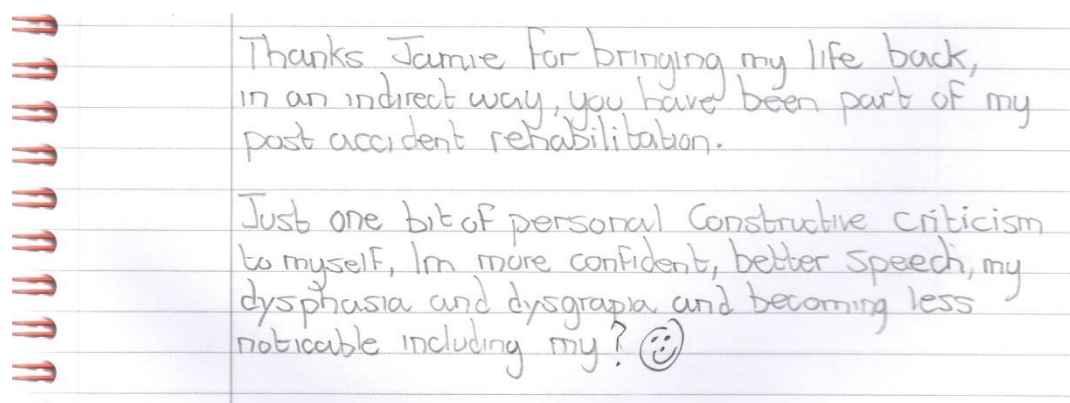 Thanks Jamie for bringing my life back,
in an indirect way, you have been part of my
post accident rehabilitation.
Just one bit of personal Constructive criticism
to myself, Im more confident, better speech, my
dysphasia and dysgrapia and becoming less
noticable including my? ☺